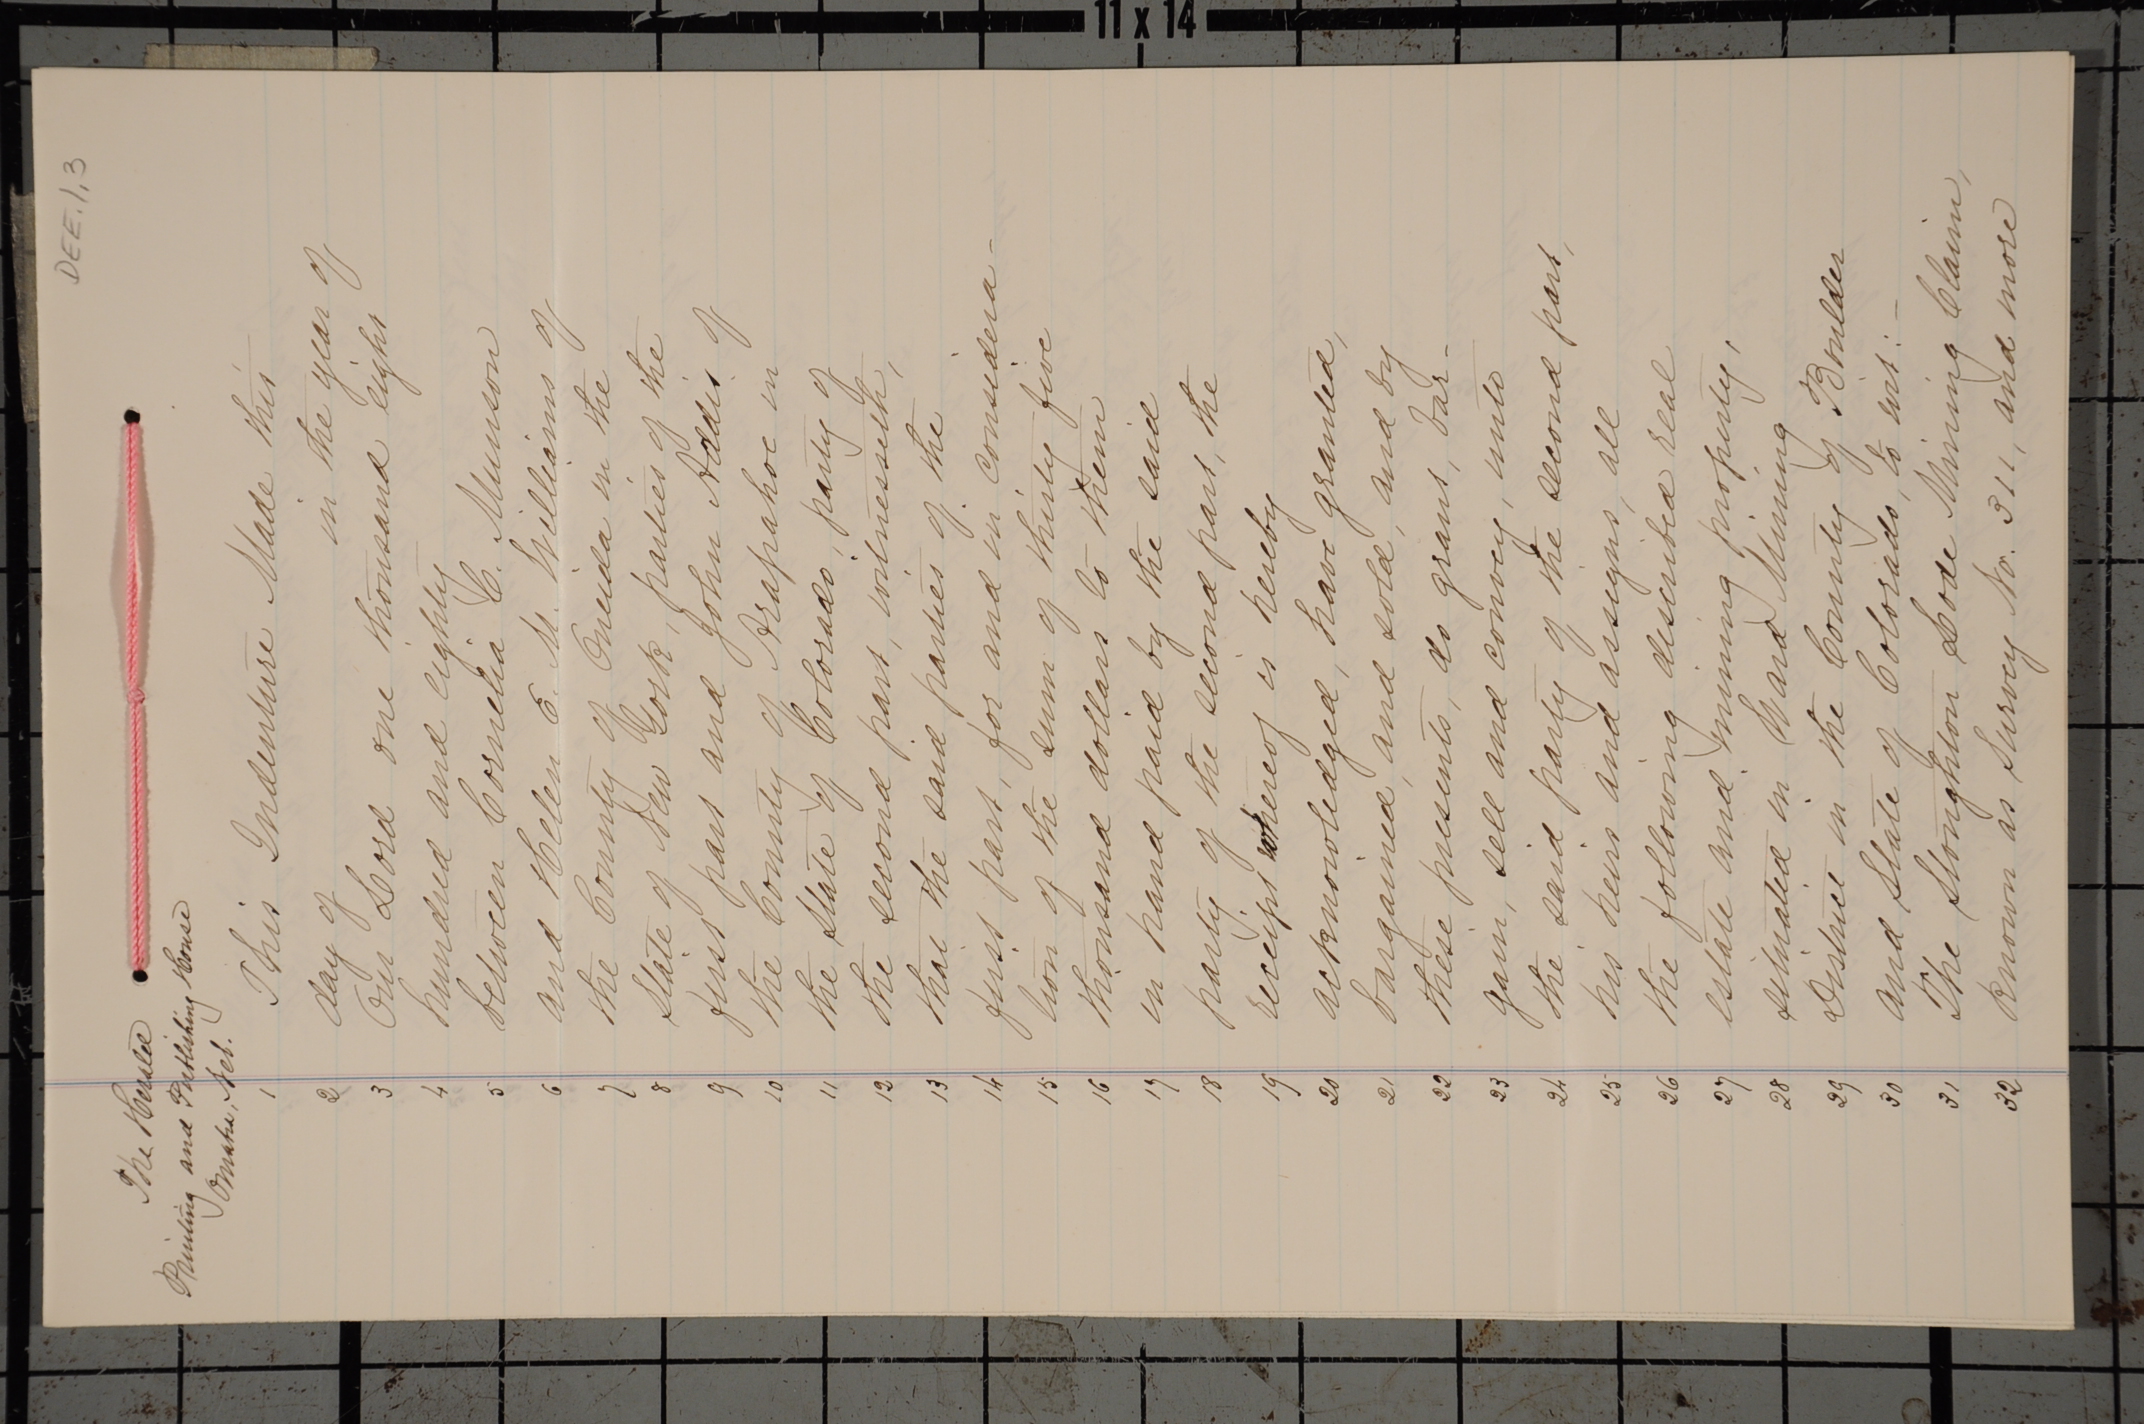 11 x 14
DEE.1,3
The Herald
Printing and Publishing House
Omaha, Neb.
1 This Indenture Made this
2 day of in the year of
3 Our Lord one thousand eight
4 hundred and eighty
5 between Cornelia C. Munson
6 and Helen E. M. Williams of
7 the County of Oneida in the
8 State of New York, parties of the
9 first part and John Addis of
10 the County of Arapahoe in
11 the State of Colorado, party of
12 the second part, witnesseth,
13 that the said parties of the
14 first part, for and in considera-
15 tion of the sum of thirty five
16 thousand dollars to them
17 in hand paid by the said
18 party of the second part, the
19 receipt whereof is hereby
20 acknowledged, have granted,
21 bargained, and sold, and by
22 these presents, do grant, bar-
23 gain, sell and convey, unto
24 the said party of the second part,
25 his heirs and assigns, all
26 the following described real
27 estate and mining property,
28 situated in Ward Mining
29 District in the County of Boulder
30 and State of Colorado, to wit:-
31 The Stoughton Lode Mining Claim,
32 known as Survey No. 311, and more